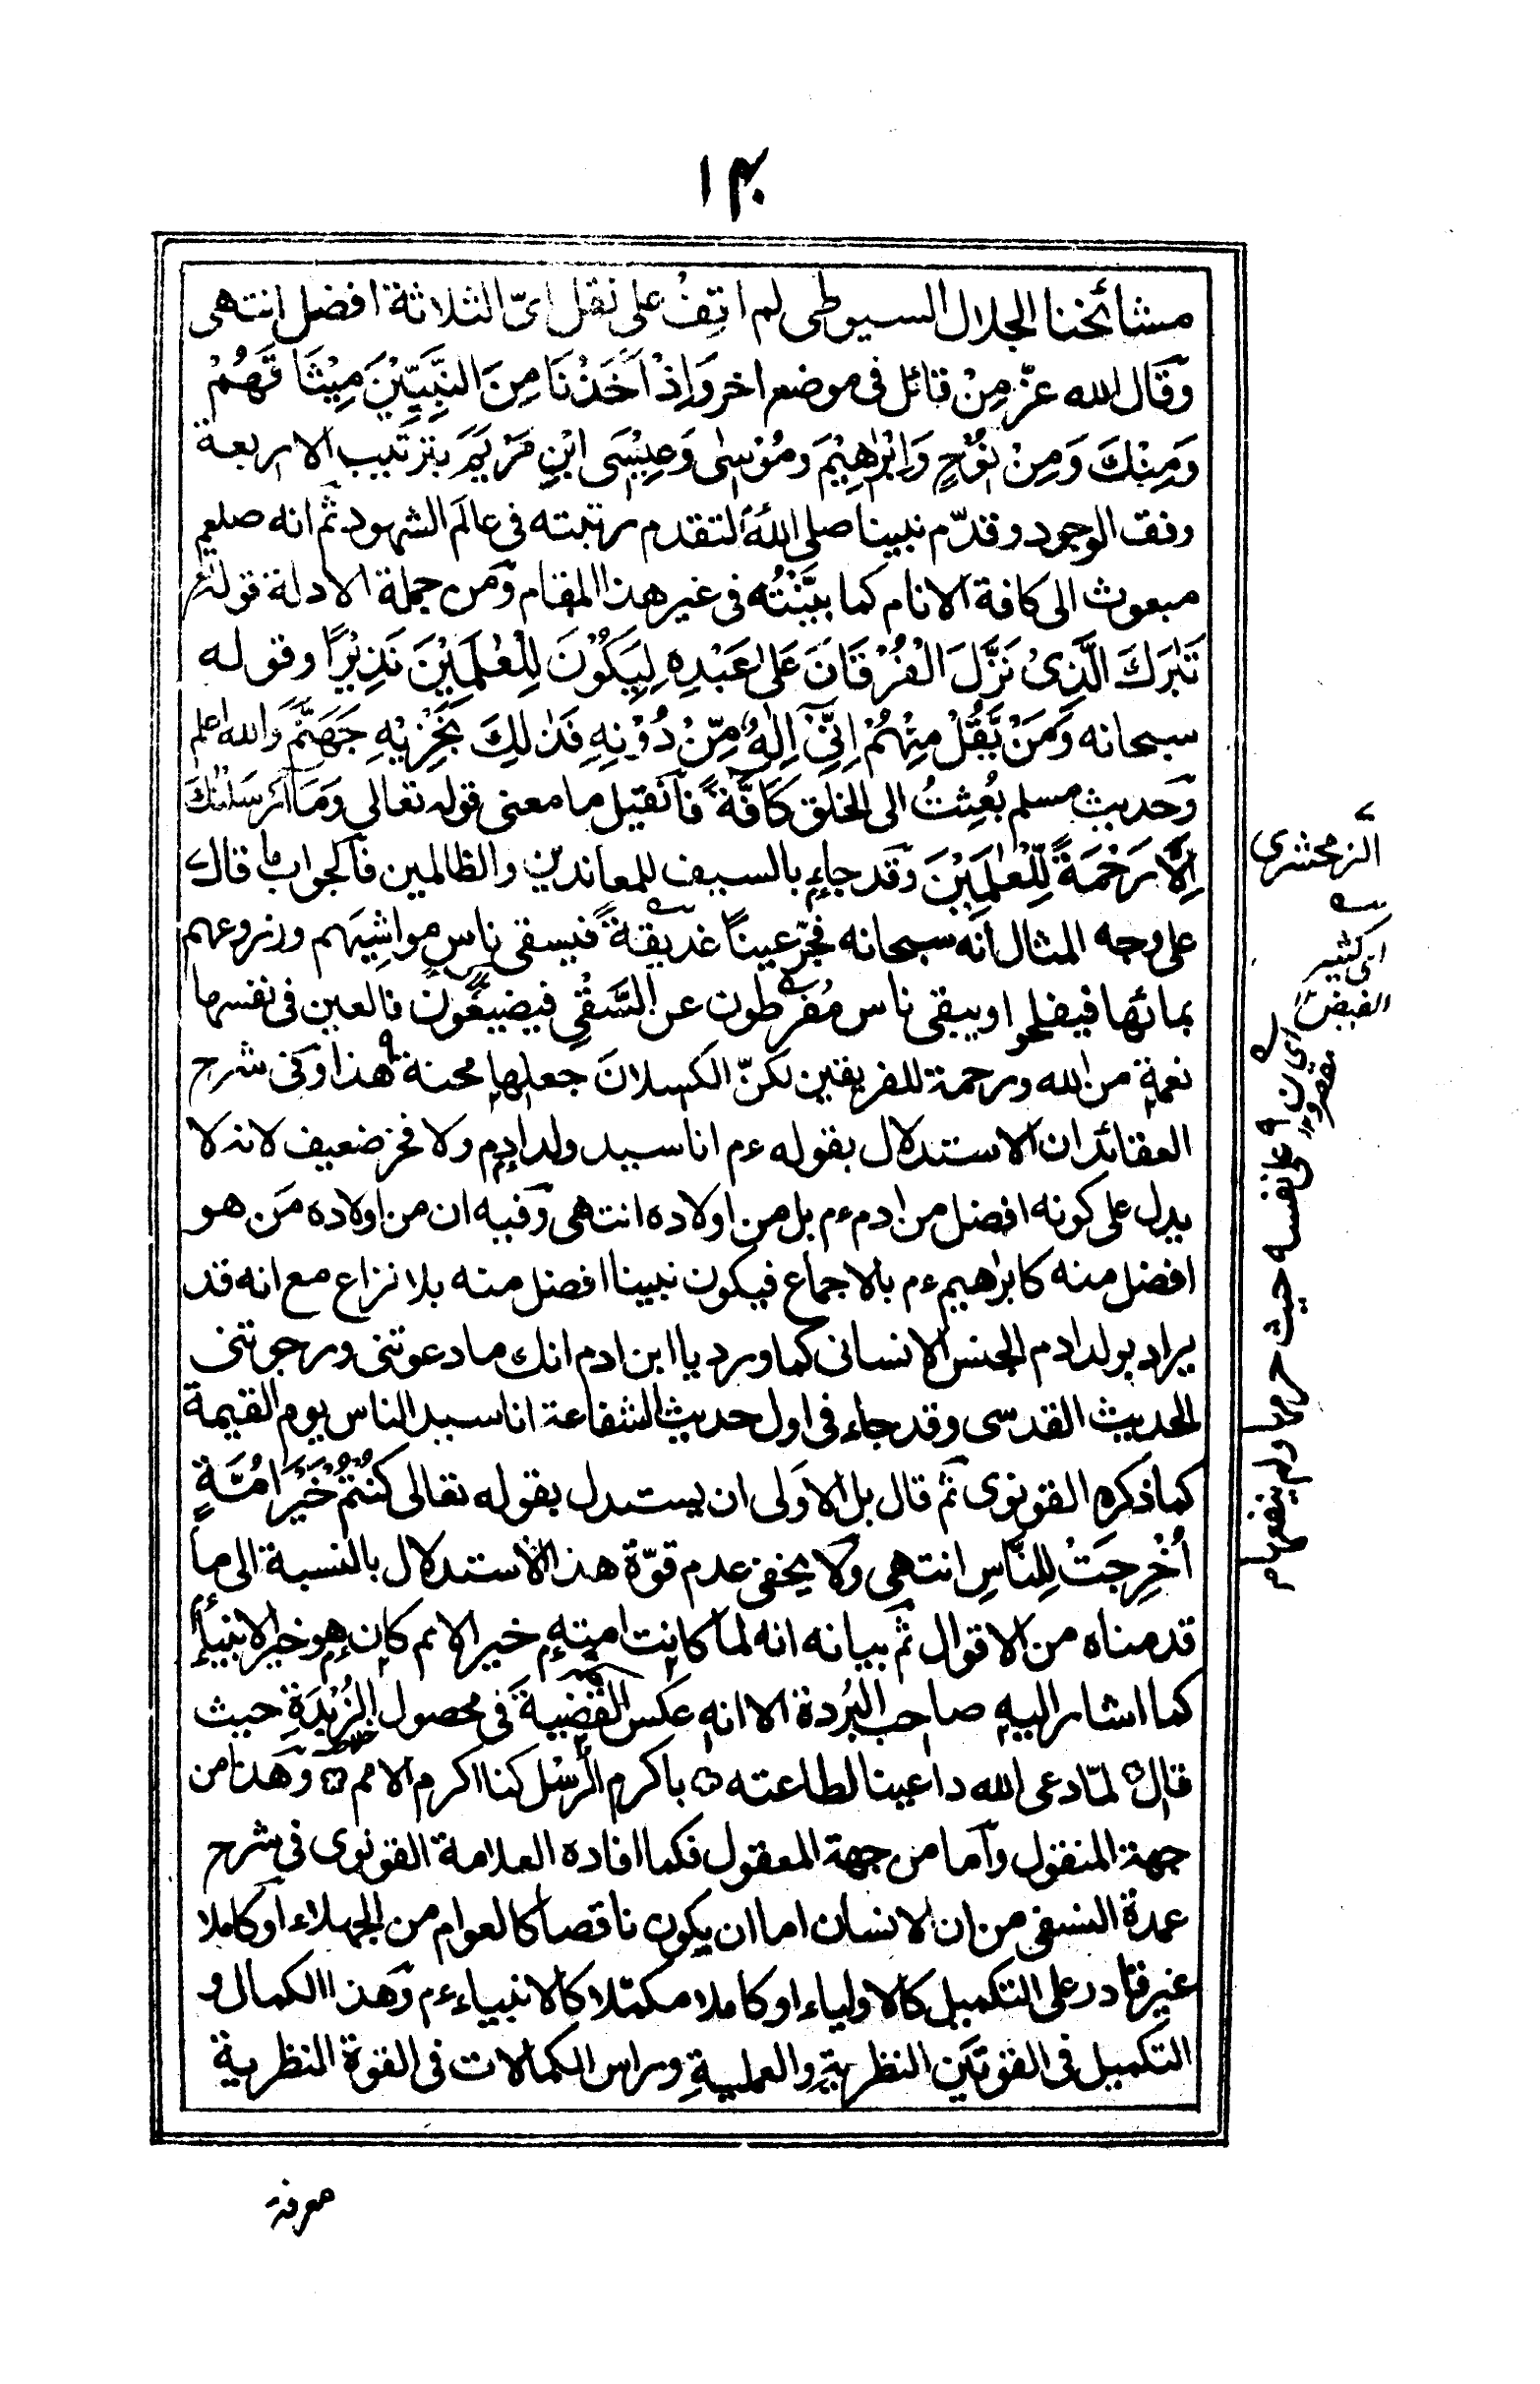 ١٣٠
مشائخنا الجلال السيوطى لم اقف على نقل اىّ الثلاثة افضل انتهى
وقال الله عزّ مِنْ قائل فى موضع اخر وَاِذْ اَخَذْنَا مِنَ النَّبِيّيْنَ مِيْثَاقَهُمْ
وَمِنْكَ وَمِنْ نُوْحٍ وَاِبْرٰهِيْمَ ومُوْسٰى وَعِيْسَى ابْنِ مَرْيَمَ بترتيب الاربعة
وفق الوجود وقدّم نبينا صلى الله لتقدم رتبته فى عالَم الشهود ثم انه صلعم
مبعوث الى كافة الانام كما بيَّنْتُه فى غير هذا المقام ومن جملة الادلة قوله
تَبٰرَكَ الَّذِىْ نَزَّلَ الْفُرْقَانَ عَلٰى عَبْدِهٖ لِيَكُوْنَ لِلْعٰلَمِيْنَ نَذِيْرًا وقوله
سبحانه وَمَنْ يَّقُلْ مِنْهُمْ اِنِّىْ اِلٰهٌ مِّنْ دُوْنِهٖ فَذٰلِكَ نَجْزِيْهِ جَهَنَّمَ والله اعلم
وحديث مسلم بُعِثتُ الى الخلق كَافَّةً فان قيل ما معنى قوله تعالى وَمَا اَرْسَلْنٰكَ
اِلَّا رَحْمَةً لِّلْعٰلَمِيْنَ وقد جاء بالسيف للمعاندين والظالمين فالجواب ما قال
على وجه المثال انه سبحانه فجّر عينًا غديقةً فيسقى ناس مواشيَهم وزروعهم
بمائها فيفلحوا ويبقى ناس مُفرطون عن السَّقْىِ فيضيعُون فالعين فى نفسها
نعمة من الله ورحمة للفريقين لكنّ الكسلانَ جعلها محنة هذا وفى شرح
العقائد ان الاستدلال بقوله ءم انا سيد ولد ادم ولا فخر ضعيف لانه لا
يدل على كونه افضل من ادم ءم بل من اولاده انتهى وفيه ان من اولاده مَن هو
افضل منه كابراهيم ءم بالاجماع فيكون نبينا افضل منه بلا نزاع مع انه قد
يراد بولد ادم الجنس الانسانى كما ورد يا ابن ادم انك ما دعوتنى ورجوتنى
الحديث القدسى وقد جاء فى اول حديث الشفاعة انا سيد الناس يوم القيمة
كما ذكره القونوى ثم قال بل الاَولى ان يستدل بقوله تعالى كُنْتُمْ خَيْرَ اُمَّةٍ
اُخْرِجَتْ لِلنَّاسِ انتهى ولا يخفى عدم قوّة هذا الاستدلال بالنسبة الى ما
قدمناه من الاقوال ثم بيانه انه لما كانت امته خير الامم كان هو خير الانبياء
كما اشار اليه صاحب البُردة الا انه عكس القضية فى محصول الزُبْدَةِ حيث
قال لمّا دعى الله داعينا لطاعته باكرم الرُسْل كنا اكرم الامم وهذا من
جهة المنقول واما من جهة المعقول فكما افاده العلامة القونوى فى شرح
عمدة النسفى من ان الانسان اما ان يكون ناقصا كالعوام من الجهلاء او كاملا
غير قادر على التكميل كالاولياء او كاملا مكمّلا كالانبياء ءم وهذا الكمال و
التكميل فى القوتَين النظريةِ والعمليةِ وراس الكمالات فى القوة النظرية
معرفة
الزمخشرى
اى كثير
الفيض
اى
على نفسه حيث حرمها ولم ينفعها